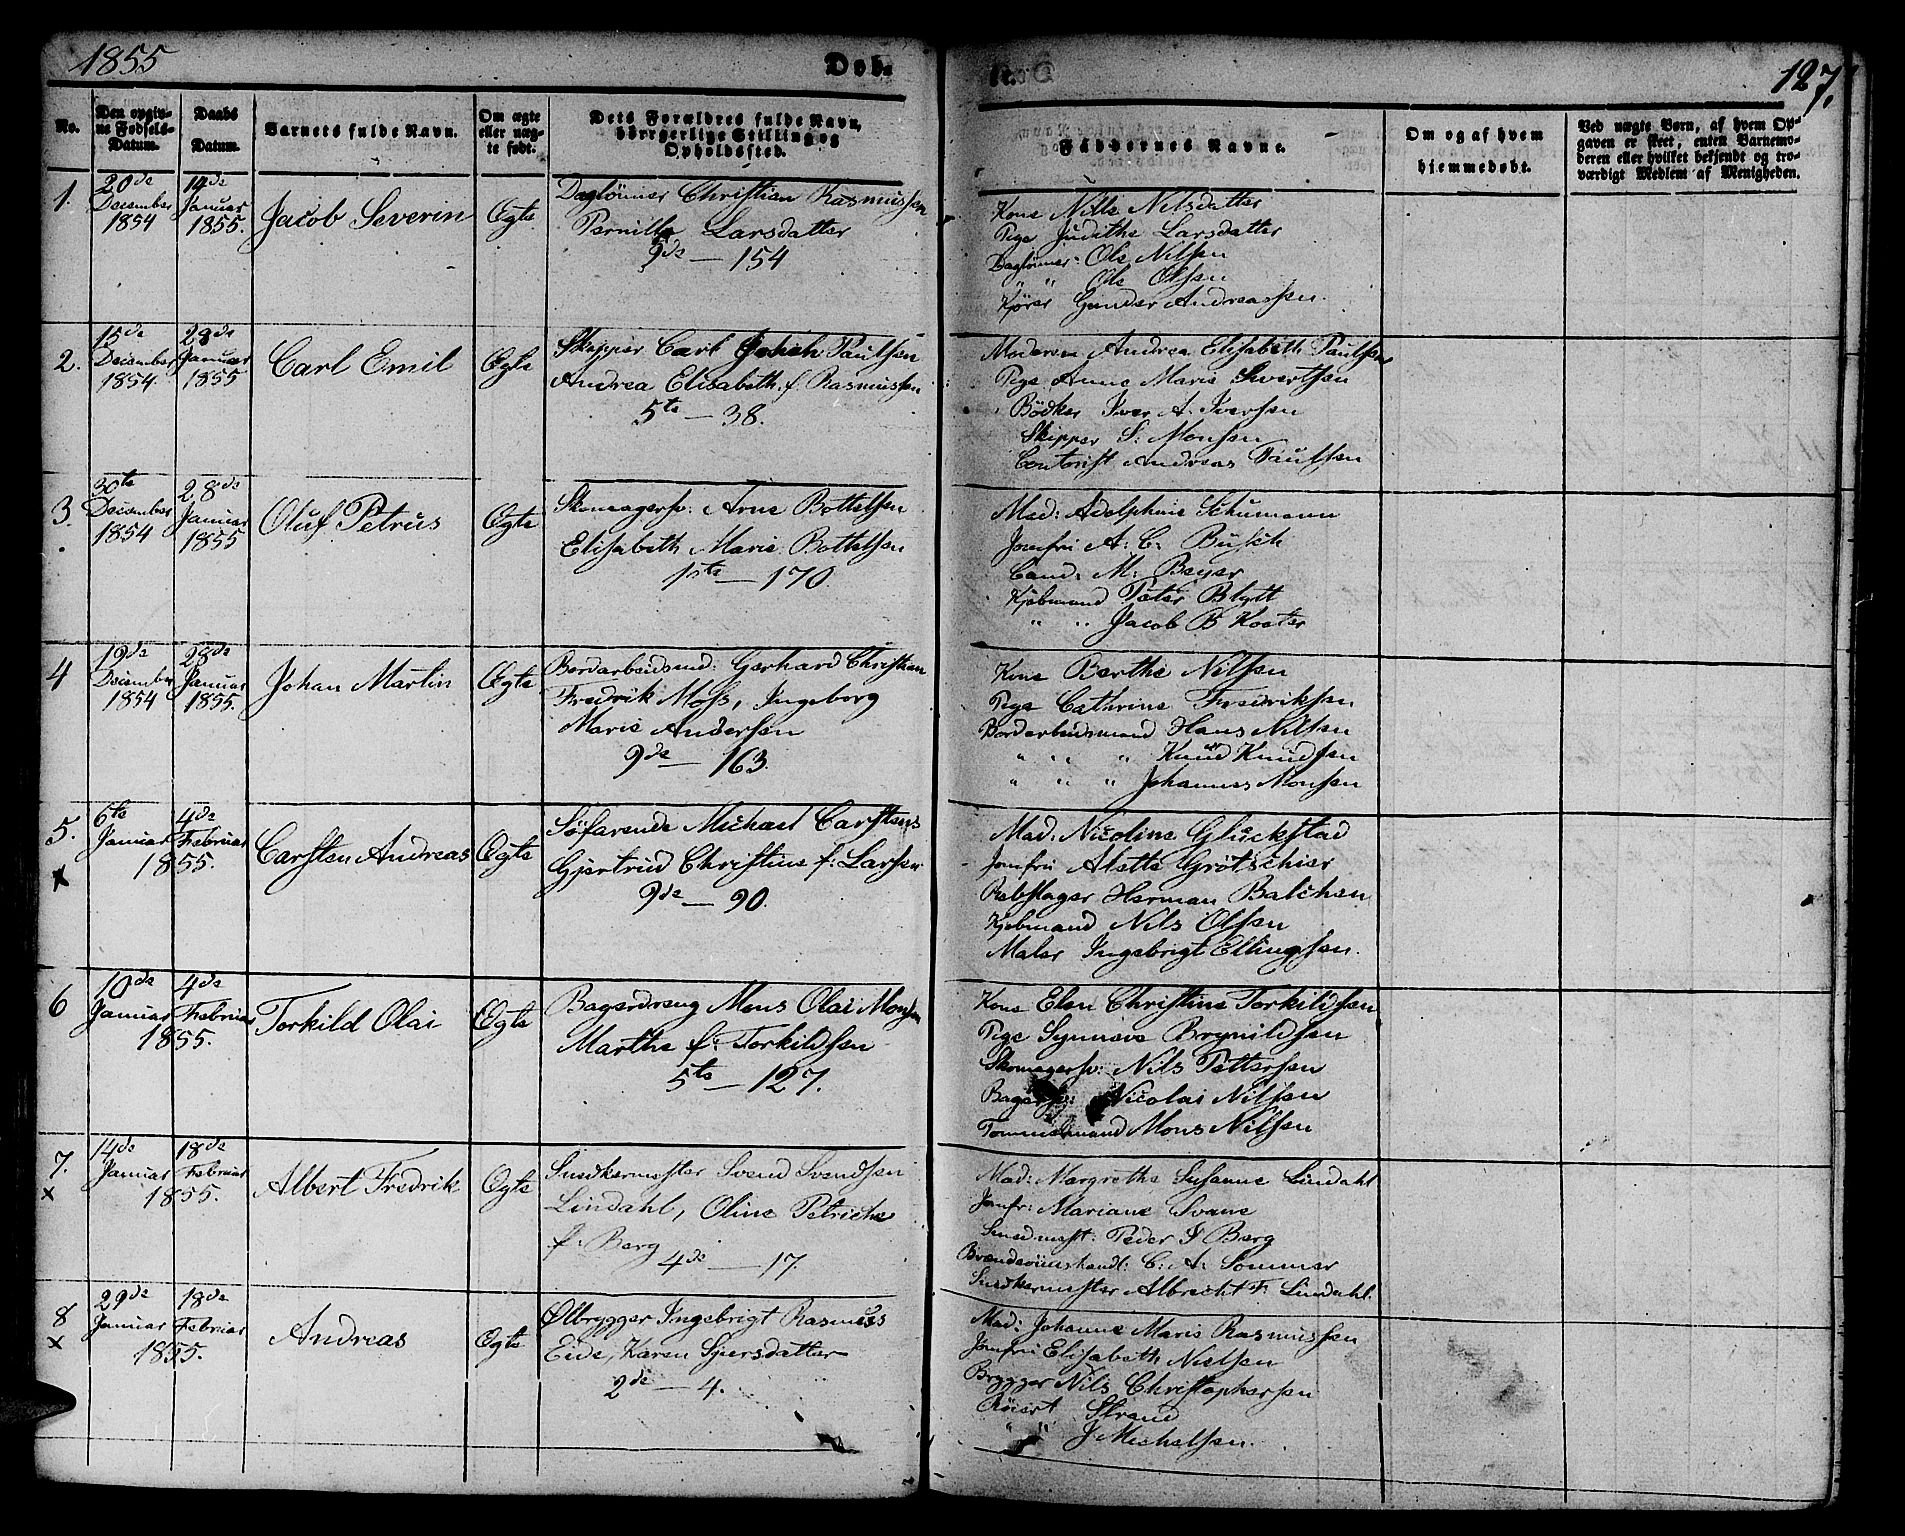 1855
Døb.
127.
No.
Den opgiv-
ne Fødsels-
Datum.
Daabs
Datum.
Barnets fulde Navn.
Om ægte
eller næg-
te født.
Dets Forældres fulde Navn,
borgerlige Stilling og
Opholdssted.
Faddernes Navne.
Om og af hvem
hjemmedøbt.
Ved uægte Børn, af hvem Op-
gaven er skeet, enten Barnemo-
deren eller hvilket bekjendt og tro-
værdigt Medlem af Menigheden.
1.
20de
December
1854
14de
Januar
1855.
Jacob Severin
Ægte
Daglönner Christian Rasmussen
Pernille Larsdatter
9de — 154
Kone Nille Nilsdatter
Pige Judithe Larsdatter
Daglönner Ole Nilsen
" " Ole Olsen
Kjører Gunder Andreassen.
2.
15de
December
1854.
28de
Januar
1855
Carl Emil
Ægte
Skipper Carl Paulsen
Andrea Elisabeth f. Rasmussen
5te — 38.
Moderen Andrea Elisabeth Paulsen
Pige Anne Marie Sivertsen
Bödker Iver A. Iversen
Skipper S: Monsen
Contorist Andreas Paulsen
3.
30te
December
1854
28de
Januar
1855
Oluf Petrus
Ægte
Skomagersv: Arne Bottelsen
Elisabeth Marie Bottelsen
1ste — 170.
Mad: Adolphine Schumann
Jomfru A. C. Busch
Cand: M: Beyer
Kjøbmand Peter Blytt
" " Jacob B Koater
4
19de
December
1854
28de
Januar
1855.
Johan Martin
Ægte
Bordarbeidsmd: Gerhard Christian
Fredrik Moss, Ingeborg
Marie Andersen
9de — 163.
Kone Berthe Nilsen
Pige Cathrine Fredriksen
Bordarbeidsmand Hans Nilsen
" " " Knud Knudsen
" " " Johannes Monsen
5.
x
6te
Januar
4de
Februar
1855.
Carsten Andreas
Ægte
Söfarende Michael Carstens
Gjertrud Christine f: Larsen
9de — 90.
Mad: Nicoline Gluckstad
Jomfru Alette Grötschier
Rebslager Herman Balchen
Kjøbmand Nils Olsen
Maler Ingebrigt Ellingsen.
6
10de
Januar
4de
Februar
1855.
Torkild Olai
Ægte
Bagerdreng Mons Olai Monsen
Marthe f: Torkildsen
5te — 127.
Kone Elen Christine Torkildsen
Pige Synneve Brynildsen
Skomagersv: Nils Pettersen
Bagersv: Nicolai Nilsen
Tømmermand Mons Nilsen
7.
x
14de
Januar
18de
Februar
1855.
Albert Fredrik
Ægte
Snedkermester Svend Svendsen
Lindahl, Oline Petriche
f: Berg
4de — 17.
Mad: Margrethe Susanne Lindahl
Jomfr: Mariane Svane
Snedmest: Peder J Berg
Brændeviinshandl: C. A. Sommer
Snedkermester Albrecht F. Lindahl.
8
x
29de
Januar
18de
Februar
1855.
Andreas
Ægte
Ølbrygger Ingebrigt Rasmuss
Eide, Karen Sjursdatter
2de — 4.
Mad: Johanne Marie Rasmussen
Jomfru Elisabeth Nielsen
Brygger Nils Christophersen
Strand
" " J Michelsen.